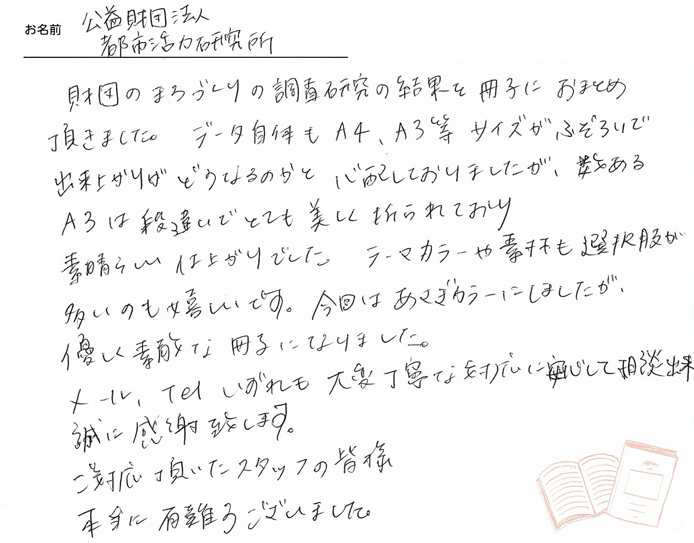 お名前
公益財団法人
都市活力研究所
財団のまちづくりの調査研究の結果を冊子におまとめ
頂きました。データ自体もA4、A3等サイズがふぞろいで
出来上がりがどうなるのかと心配しておりましたが、数ある
A3は段違いでとても美しく折られており
素晴らしい仕上がりでした。テーマカラーや素材も選択肢が
多いのも嬉しいです。今回はあさぎカラーにしましたが、
優しく素敵な冊子になりました。
メール、Telいずれも大変丁寧な対応に安心して相談出来
誠に感謝致します。
ご対応頂いたスタッフの皆様
本当に有難うございました。